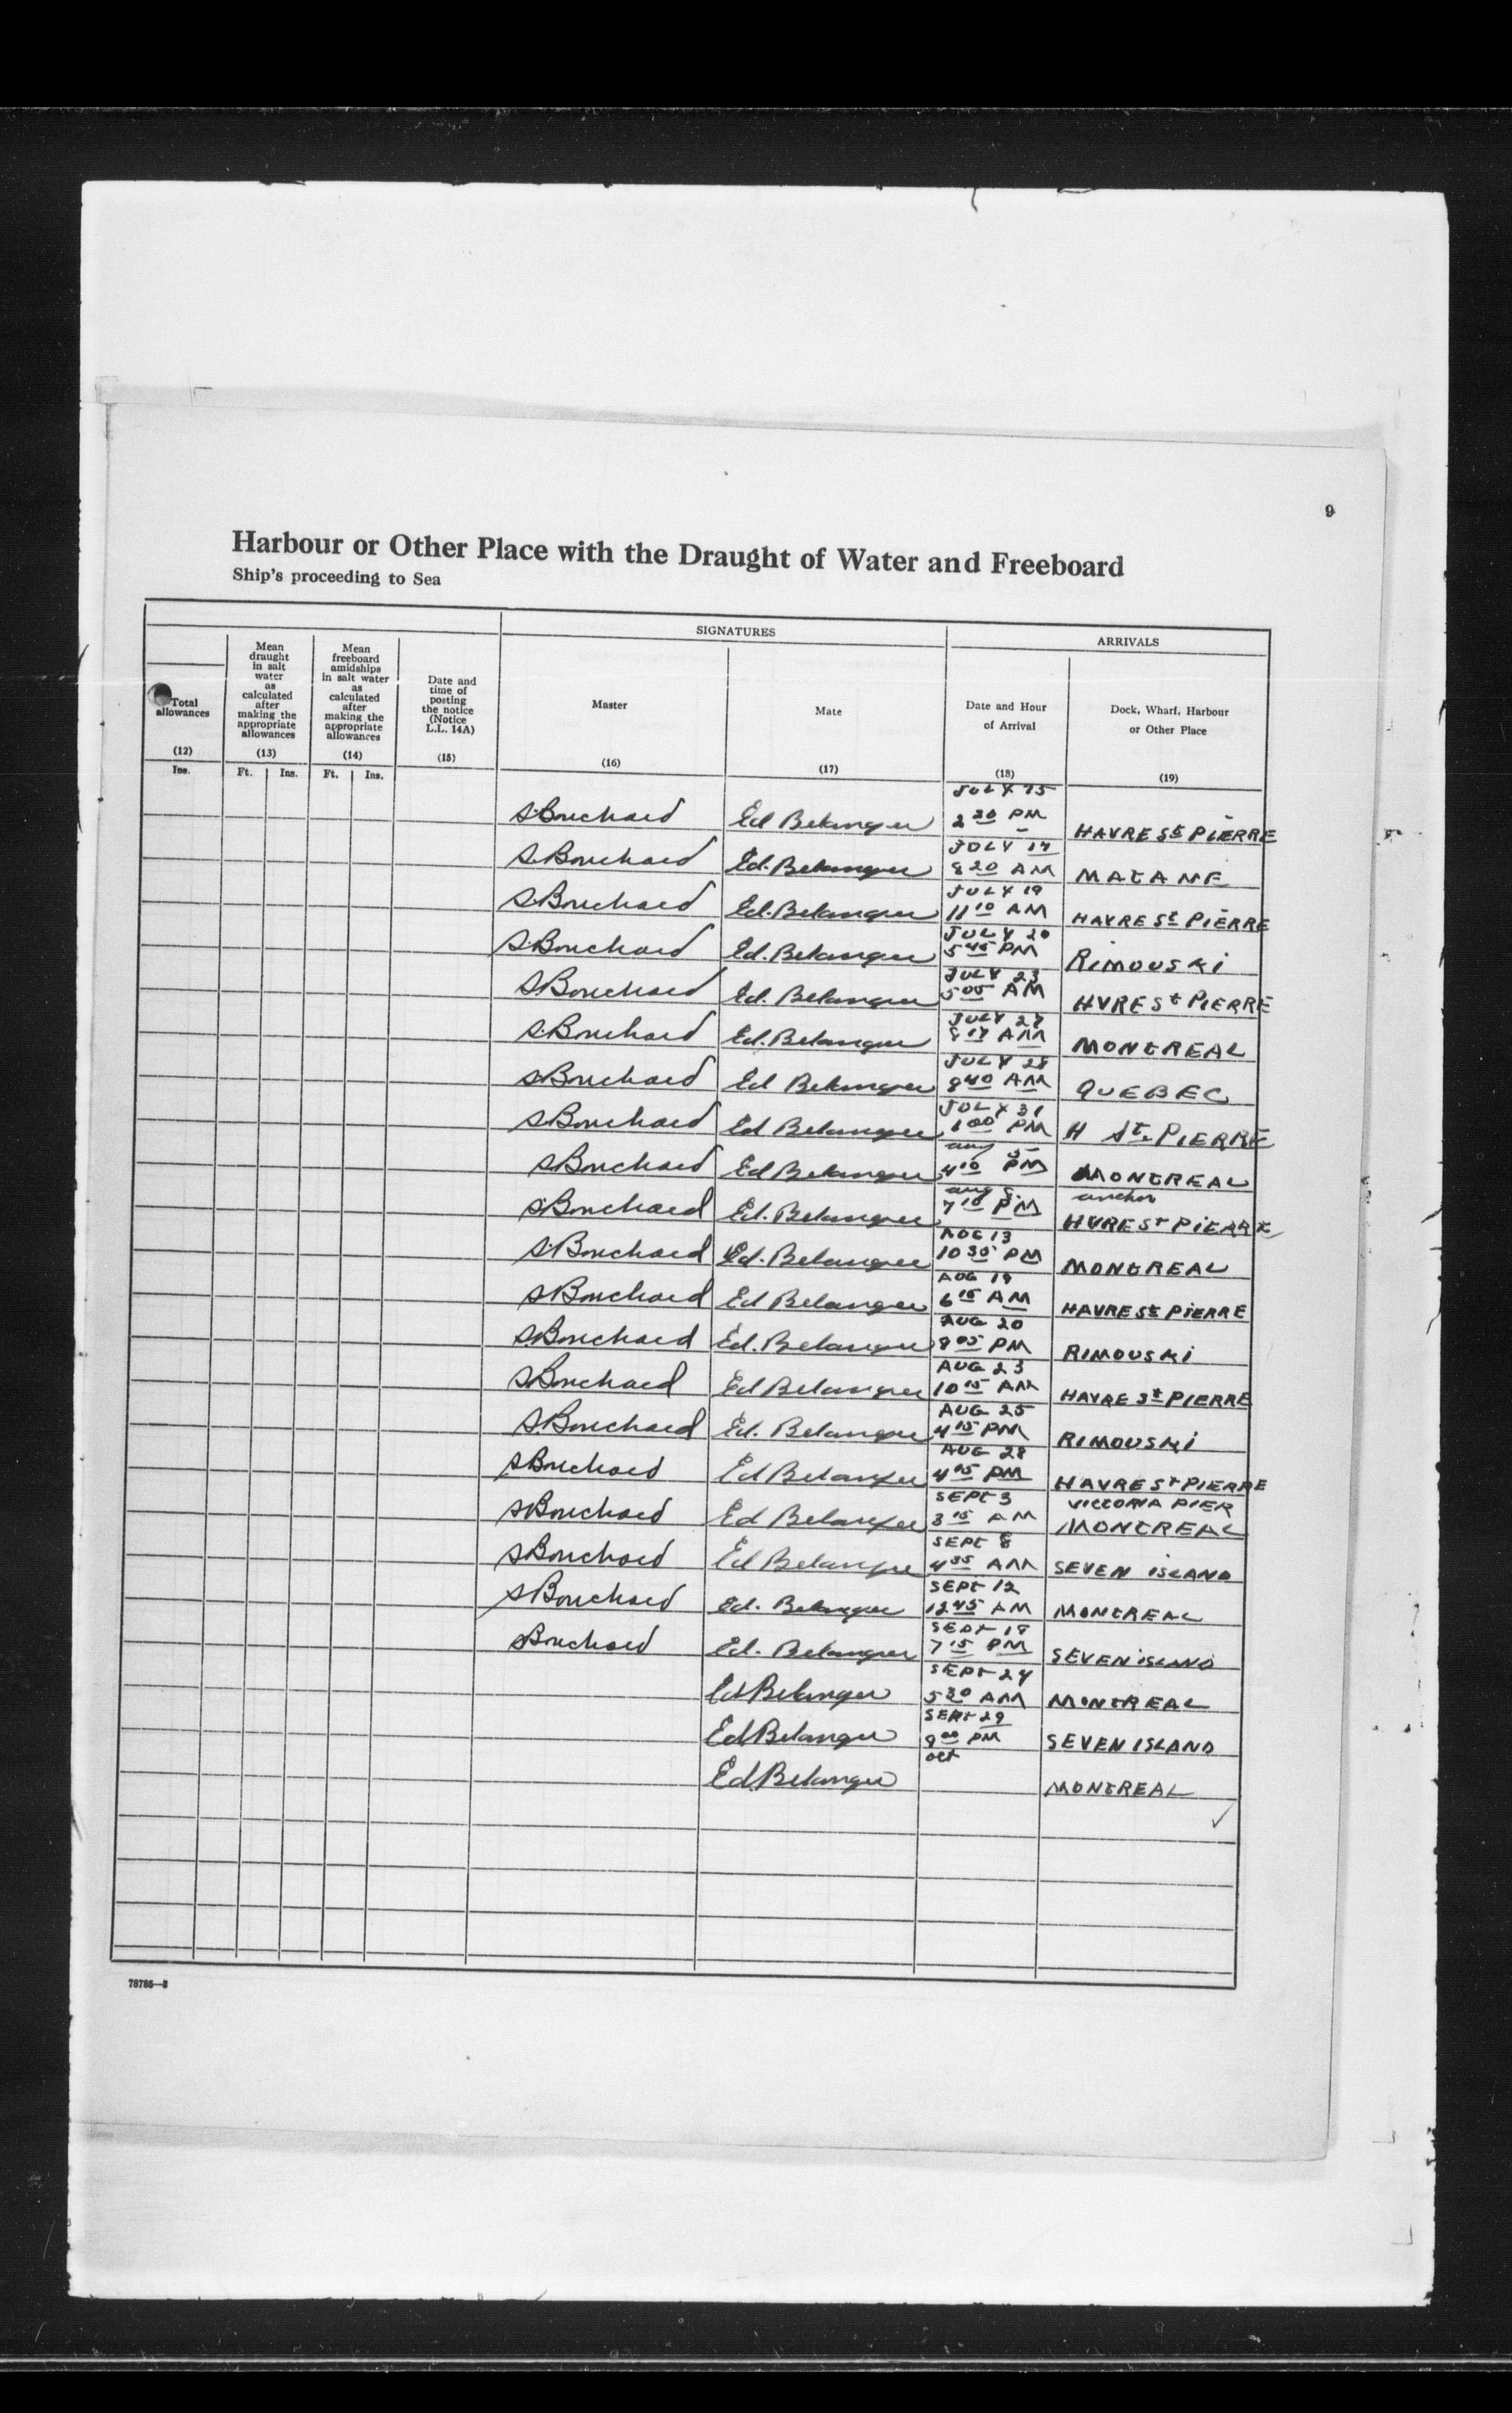 9
Harbour or Other Place with the Draught of Water and Freeboard
Ship's proceeding to Sea
SIGNATURES ARRIVALS
Total allowances (12) Ins.
Mean draught in salt water as calculated after making the appropriate allowances (13) Ft. Ins.
Mean freeboard amidships in salt water as calculated after making the appropriate allowances (14) Ft. Ins.
Date and time of posting the notice (Notice L.L. 14A) (15)
Master (16)
Mate (17)
Date and Hour of Arrival (18)
Dock, Wharf, Harbour or Other Place (19)
S.Bouchard Ed Belanger JULY 15 2 20 PM HAVRE St PIERRE
S.Bouchard Ed. Belanger JULY 17 8 20 AM MATANE
S.Bouchard Ed. Belanger JULY 19 11 10 AM HAVRE St PIERRE
S.Bouchard Ed. Belanger JULY 20 5 45 PM RIMOUSKI
S.Bouchard Ed. Belanger JULY 23 5 05 AM HVRE St PIERRE
S.Bouchard Ed. Belanger JULY 27 AM MONTREAL
S.Bouchard Ed Belanger JULY 28 8 40 AM QUEBEC
S.Bouchard Ed Belanger JULY 31 00 PM H St. PIERRE
S.Bouchard Ed Belanger aug 5 4 10 PM MONTREAL
S.Bouchard Ed. Belanger aug 8 7 10 PM anchor HVRE St PIERRE
S.Bouchard Ed. Belanger AUG 13 10 35 PM MONTREAL
S.Bouchard Ed Belanger AUG 6 15 AM HAVRE St PIERRE
S.Bouchard Ed. Belanger AUG 20 8 05 PM RIMOUSKI
S.Bouchard Ed Belanger AUG 23 10 15 AM HAVRE St PIERRE
S.Bouchard Ed. Belanger AUG 25 4 15 PM RIMOUSKI
S.Bouchard Ed Belanger AUG 28 4 05 PM HAVRE St PIERRE
S.Bouchard Ed Belanger SEPT 3 3 15 AM VICTORIA PIER MONTREAL
S.Bouchard Ed Belanger SEPT 8 4 35 AM SEVEN ISLAND
S.Bouchard Ed. Belanger SEPT 12 12 45 AM MONTREAL
S.Bouchard Ed. Belanger SEPT 7 15 PM SEVEN ISLAND
Ed Belanger SEPT 24 5 30 AM MONTREAL
Ed Belanger SEPT 29 8 00 PM SEVEN ISLAND
Ed. Belanger oct MONTREAL
78785—3